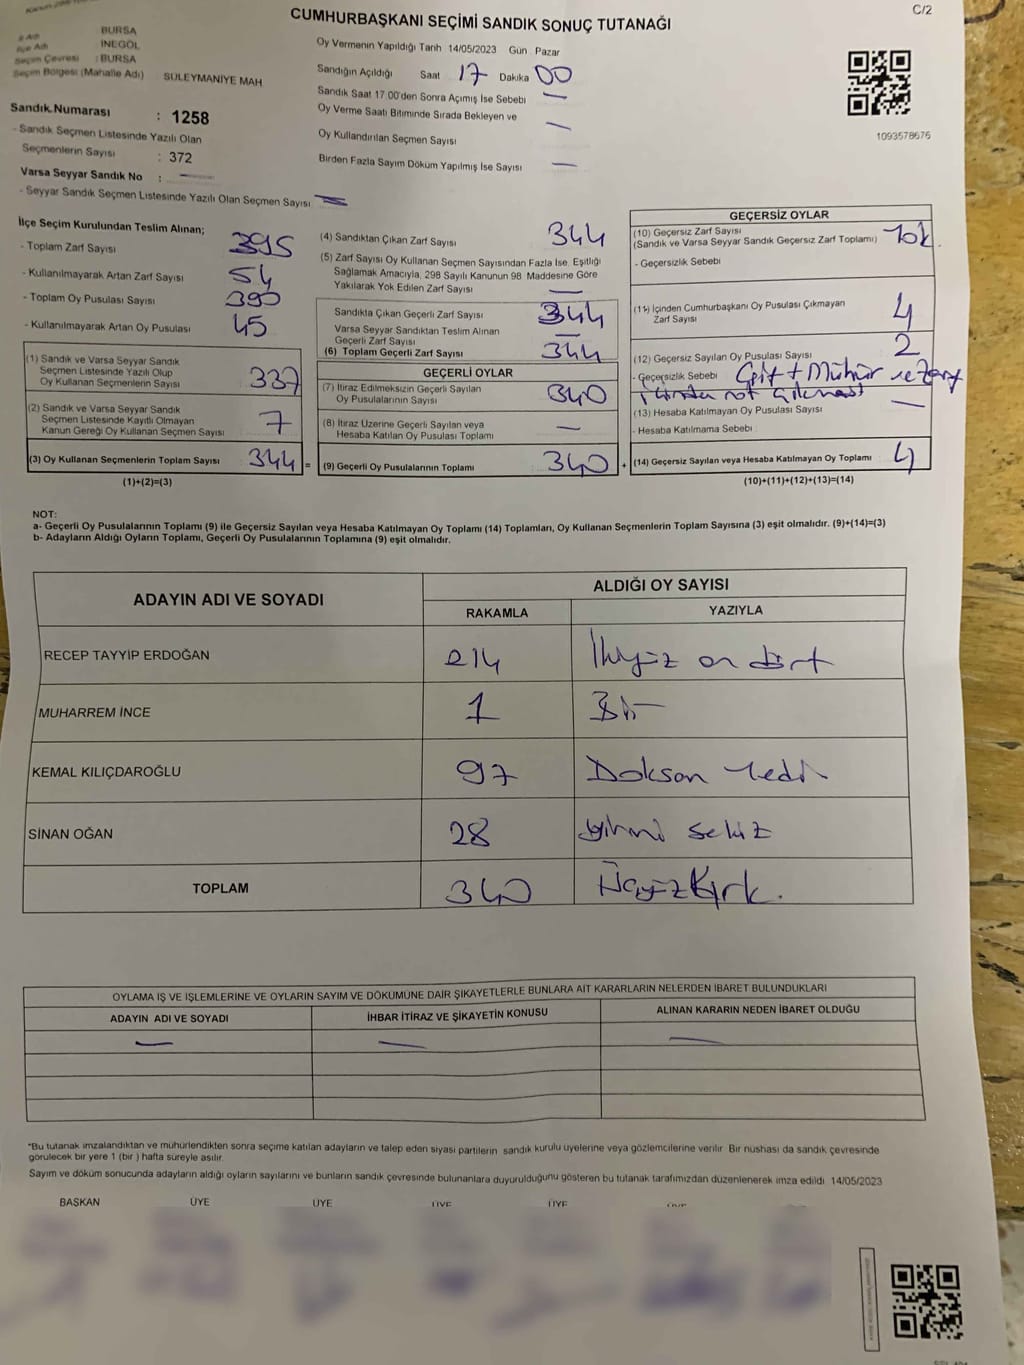 C/2
CUMHURBAŞKANI SEÇİMİ SANDIK SONUÇ TUTANAĞI
BURSA
İlçe Adı INEGÖL
Seçim Çevresi : BURSA
Seçim Bölgesi (Mahalle Adı) SÜLEYMANİYE MAH
Sandık Numarası : 1258
- Sandık Seçmen Listesinde Yazılı Olan
Seçmenlerin Sayısı : 372
Varsa Seyyar Sandık No : —
- Seyyar Sandık Seçmen Listesinde Yazılı Olan Seçmen Sayısı —
Oy Vermenin Yapıldığı Tarih 14/05/2023 Gün Pazar
Sandığın Açıldığı Saat 17 Dakika 00
Sandık Saat 17.00'den Sonra Açımış İse Sebebi —
Oy Verme Saati Bitiminde Sırada Bekleyen ve
Oy Kullandırılan Seçmen Sayısı —
Birden Fazla Sayım Döküm Yapılmış İse Sayısı —
1093578676
İlçe Seçim Kurulundan Teslim Alınan;
- Toplam Zarf Sayısı 395
- Kullanılmayarak Artan Zarf Sayısı 54
- Toplam Oy Pusulası Sayısı 390
- Kullanılmayarak Artan Oy Pusulası 45
(1) Sandık ve Varsa Seyyar Sandık
Seçmen Listesinde Yazılı Olup
Oy Kullanan Seçmenlerin Sayısı 337
(2) Sandık ve Varsa Seyyar Sandık
Seçmen Listesinde Kayıtlı Olmayan
Kanun Gereği Oy Kullanan Seçmen Sayısı 7
(3) Oy Kullanan Seçmenlerin Toplam Sayısı 344 =
(1)+(2)=(3)
(4) Sandıktan Çıkan Zarf Sayısı 344
(5) Zarf Sayısı Oy Kullanan Seçmen Sayısından Fazla İse, Eşitliği
Sağlamak Amacıyla, 298 Sayılı Kanunun 98. Maddesine Göre
Yakılarak Yok Edilen Zarf Sayısı —
Sandıkta Çıkan Geçerli Zarf Sayısı 344
Varsa Seyyar Sandıktan Teslim Alınan
Geçerli Zarf Sayısı —
(6) Toplam Geçerli Zarf Sayısı 344
GEÇERLİ OYLAR
(7) İtiraz Edilmeksizin Geçerli Sayılan
Oy Pusulalarının Sayısı 340
(8) İtiraz Üzerine Geçerli Sayılan veya
Hesaba Katılan Oy Pusulası Toplamı —
(9) Geçerli Oy Pusulalarının Toplamı 340 +
GEÇERSİZ OYLAR
(10) Geçersiz Zarf Sayısı
(Sandık ve Varsa Seyyar Sandık Geçersiz Zarf Toplamı) Yok.
- Geçersizlik Sebebi
(11) İçinden Cumhurbaşkanı Oy Pusulası Çıkmayan
Zarf Sayısı 4
(12) Geçersiz Sayılan Oy Pusulası Sayısı 2
- Geçersizlik Sebebi Çift + Mühür ve Zarf
(13) Hesaba Katılmayan Oy Pusulası Sayısı —
- Hesaba Katılmama Sebebi
(14) Geçersiz Sayılan veya Hesaba Katılmayan Oy Toplamı 4
(10)+(11)+(12)+(13)=(14)
NOT:
a- Geçerli Oy Pusulalarının Toplamı (9) ile Geçersiz Sayılan veya Hesaba Katılmayan Oy Toplamı (14) Toplamları, Oy Kullanan Seçmenlerin Toplam Sayısına (3) eşit olmalıdır. (9)+(14)=(3)
b- Adayların Aldığı Oyların Toplamı, Geçerli Oy Pusulalarının Toplamına (9) eşit olmalıdır.
ADAYIN ADI VE SOYADI
ALDIĞI OY SAYISI
RAKAMLA YAZIYLA
RECEP TAYYİP ERDOĞAN 214 İkiyüz on dört
MUHARREM İNCE 1 Bir
KEMAL KILIÇDAROĞLU 97 Doksan Yedi
SİNAN OĞAN 28 yirmi sekiz
TOPLAM 340 Üçyüz Kırk.
OYLAMA İŞ VE İŞLEMLERİNE VE OYLARIN SAYIM VE DÖKÜMÜNE DAİR ŞİKAYETLERLE BUNLARA AİT KARARLARIN NELERDEN İBARET BULUNDUKLARI
ADAYIN ADI VE SOYADI İHBAR İTİRAZ VE ŞİKAYETİN KONUSU ALINAN KARARIN NEDEN İBARET OLDUĞU
— — —
*Bu tutanak imzalandıktan ve mühürlendikten sonra seçime katılan adayların ve talep eden siyasi partilerin sandık kurulu üyelerine veya gözlemcilerine verilir. Bir nüshası da sandık çevresinde
görülecek bir yere 1 (bir ) hafta süreyle asılır.
Sayım ve döküm sonucunda adayların aldığı oyların sayılarını ve bunların sandık çevresinde bulunanlara duyurulduğunu gösteren bu tutanak tarafımızdan düzenlenerek imza edildi 14/05/2023
BAŞKAN ÜYE ÜYE ÜYE ÜYE ÜYE